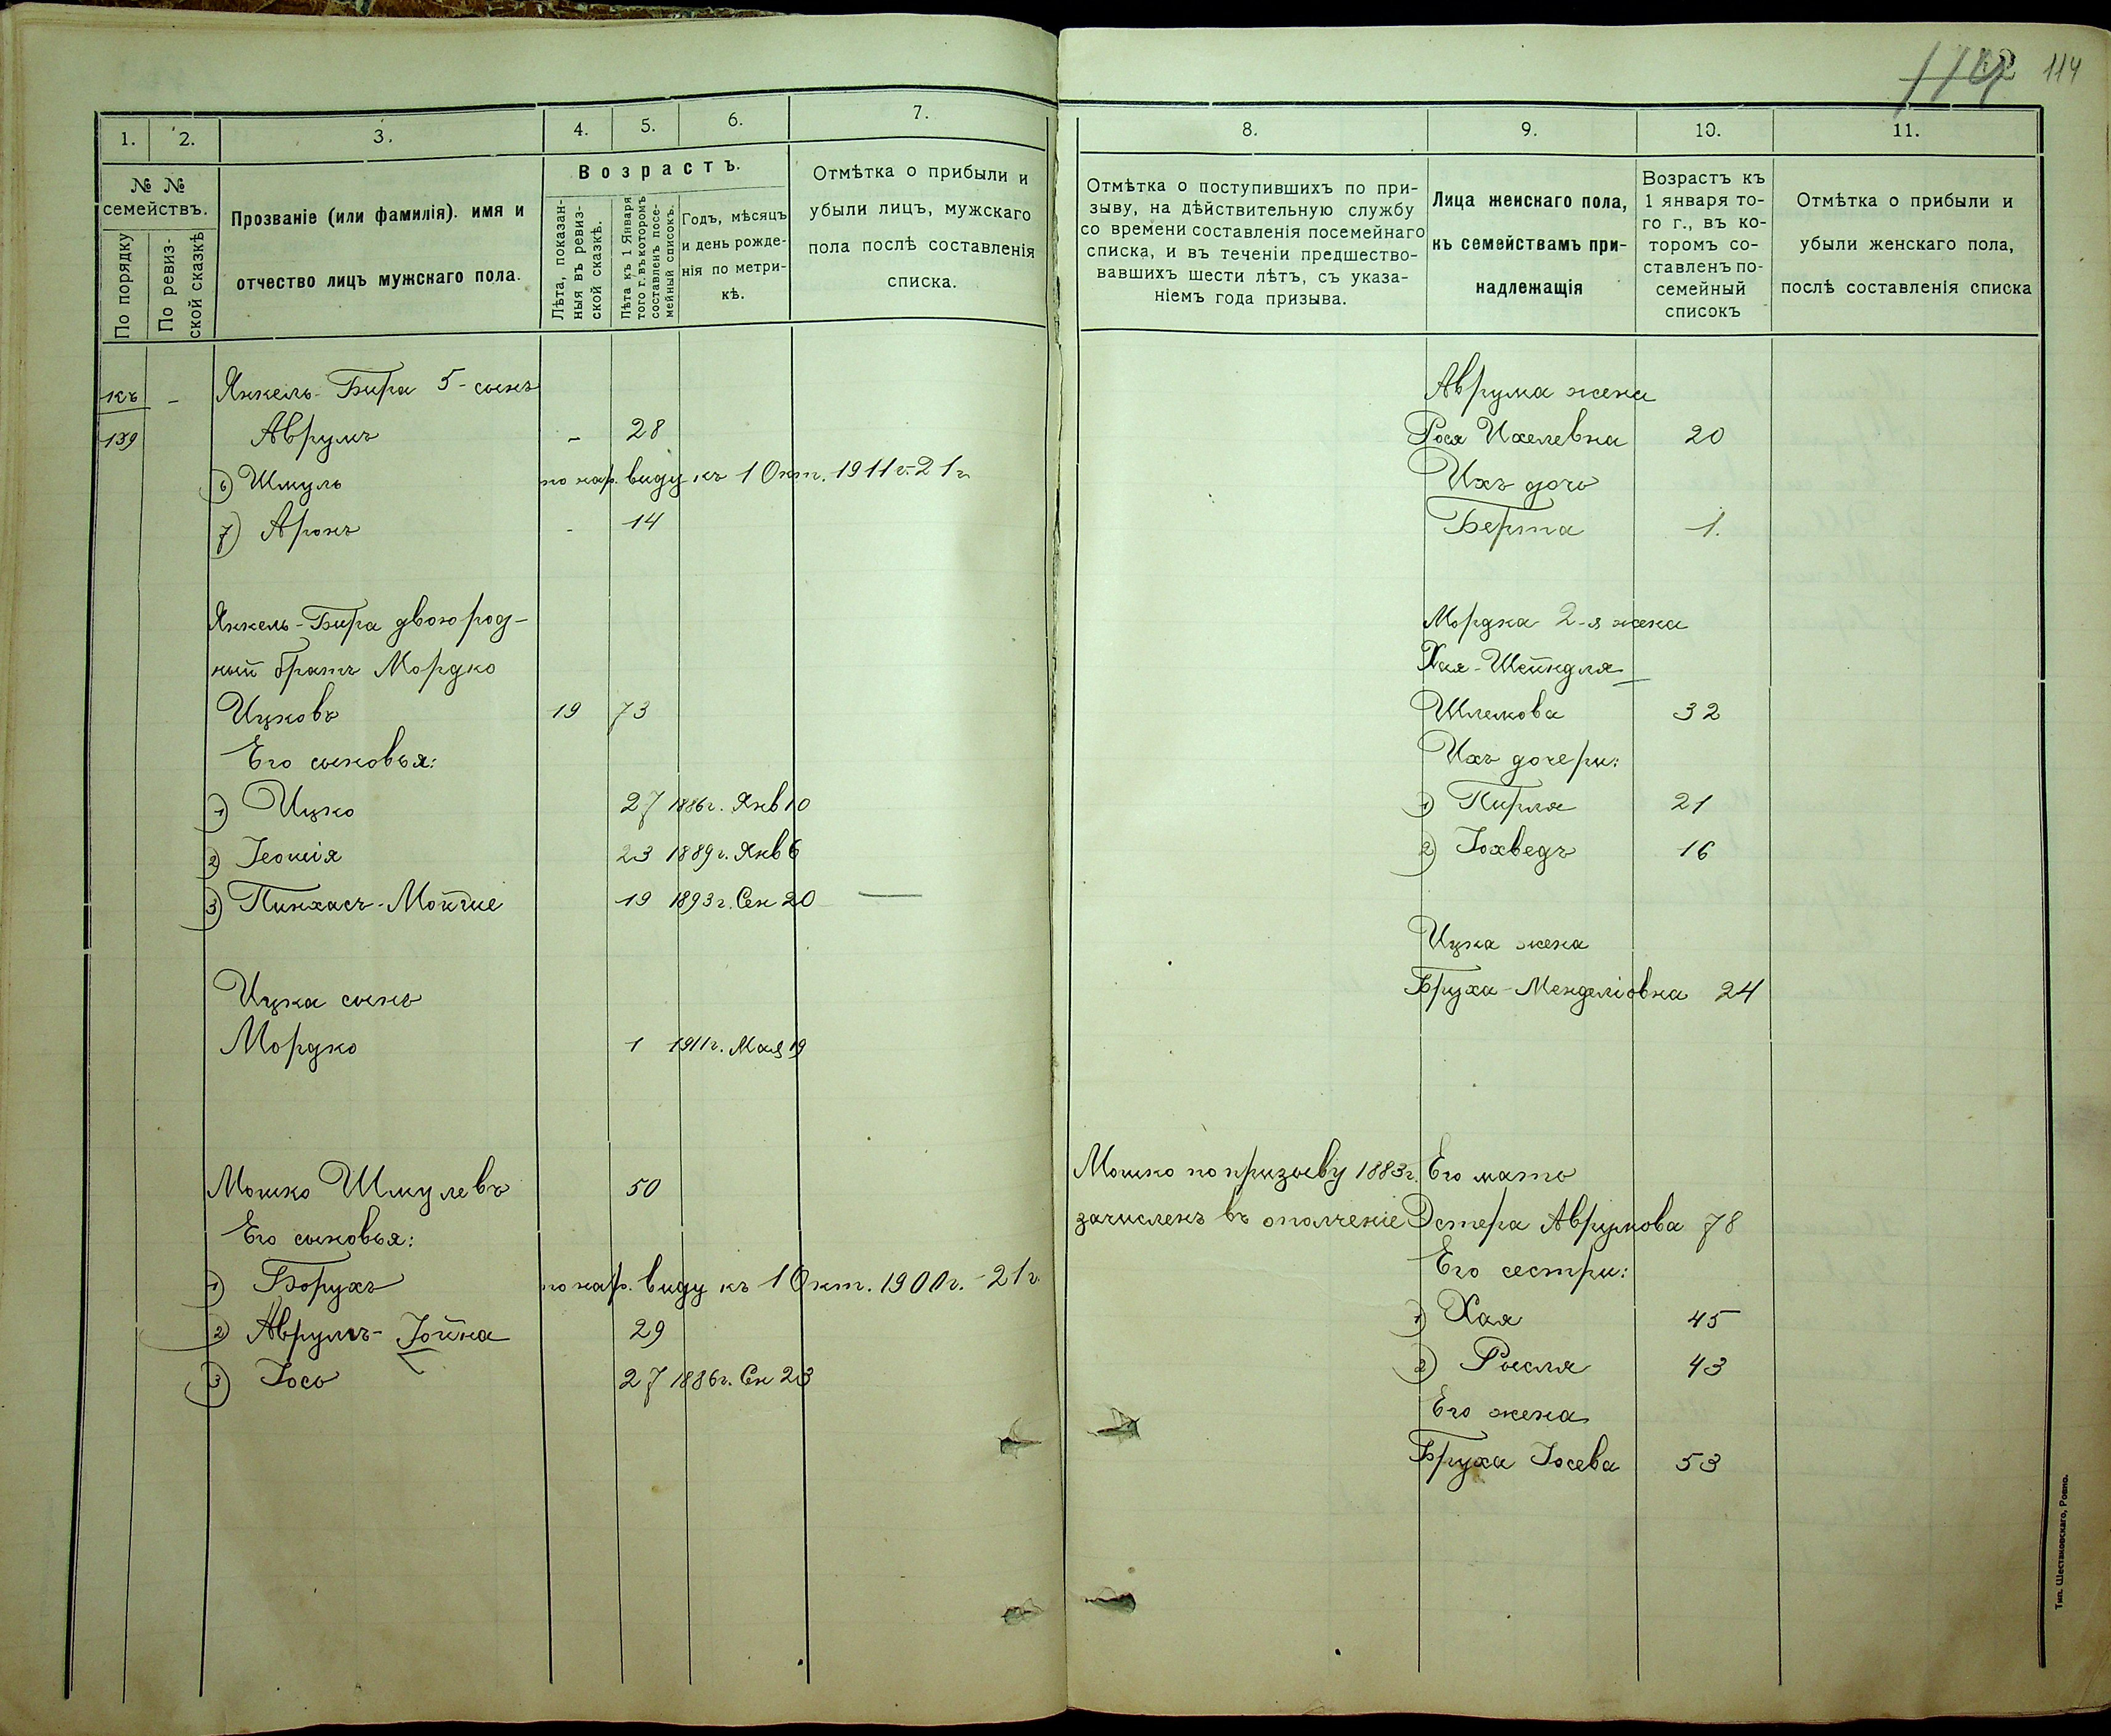 114
1. 2. 3. 4. 5. 6. 7.
№ №
семействъ.
По порядку
По ревиз-
ской сказкѣ
Прозваніе (или фамилія). имя и
отчество лицъ мужскаго пола.
Возрастъ.
Лѣта, показан-
ныя въ ревиз-
ской сказкѣ.
Лѣта къ 1 Января
того г. въ которомъ
составленъ посе-
мейный списокъ.
Годъ, мѣсяцъ
и день рожде-
нія по метри-
кѣ.
Отмѣтка о прибыли и
убыли лицъ, мужскаго
пола послѣ составленія
списка.
къ - Янкель-Бира 5-сынъ
139 Аврумъ - 28
6) Шмуль по нар. виду къ 1 Окт. 1911 г. - 21 г.
7) Аронъ - 14
Янкель-Бира двоюрод-
ный братъ Мордко
Ицковъ 19 73
Его сыновья:
1) Ицко 27 1886 г. Янв 10
2) Іеошія 23 1889 г. Янв 6
3) Пинхасъ-Мойше 19 1893 г. Сен 20 —
Ицка сынъ
Мордко 1 1911 г. Мая 19
Мошко Шмулевъ 50
Его сыновья:
1) Борухъ по нар. виду къ 1 Окт. 1900 г. - 21 г.
2) Аврумъ-Іойна 29
3) Іось 27 1886 г. Сен 23
8. 9. 10. 11.
Отмѣтка о поступившихъ по при-
зыву, на дѣйствительную службу
со времени составленія посемейнаго
списка, и въ теченіи предшество-
вавшихъ шести лѣтъ, съ указа-
ніемъ года призыва.
Лица женскаго пола,
къ семействамъ при-
надлежащія
Возрастъ къ
1 января то-
го г., въ ко-
торомъ со-
ставленъ по-
семейный
списокъ
Отмѣтка о прибыли и
убыли женскаго пола,
послѣ составленія списка
Аврума жена
Рося Ихелевна 20
Ихъ дочь
Берта 1.
Мордка 2-я жена
Хая-Шейндля
Шлемова 32
Ихъ дочери:
1) Пирля 21
2) Іохведъ 16
Ицка жена
Бруха-Менделіовна 24
Мошко по призыву 1883 г. Его мать
зачисленъ въ ополченіе Эстера Аврумова 78
Его сестри:
1) Хая 45
2) Рысля 43
Его жена
Бруха Іосева 53
Тип. Шестаковскаго, Ровно.